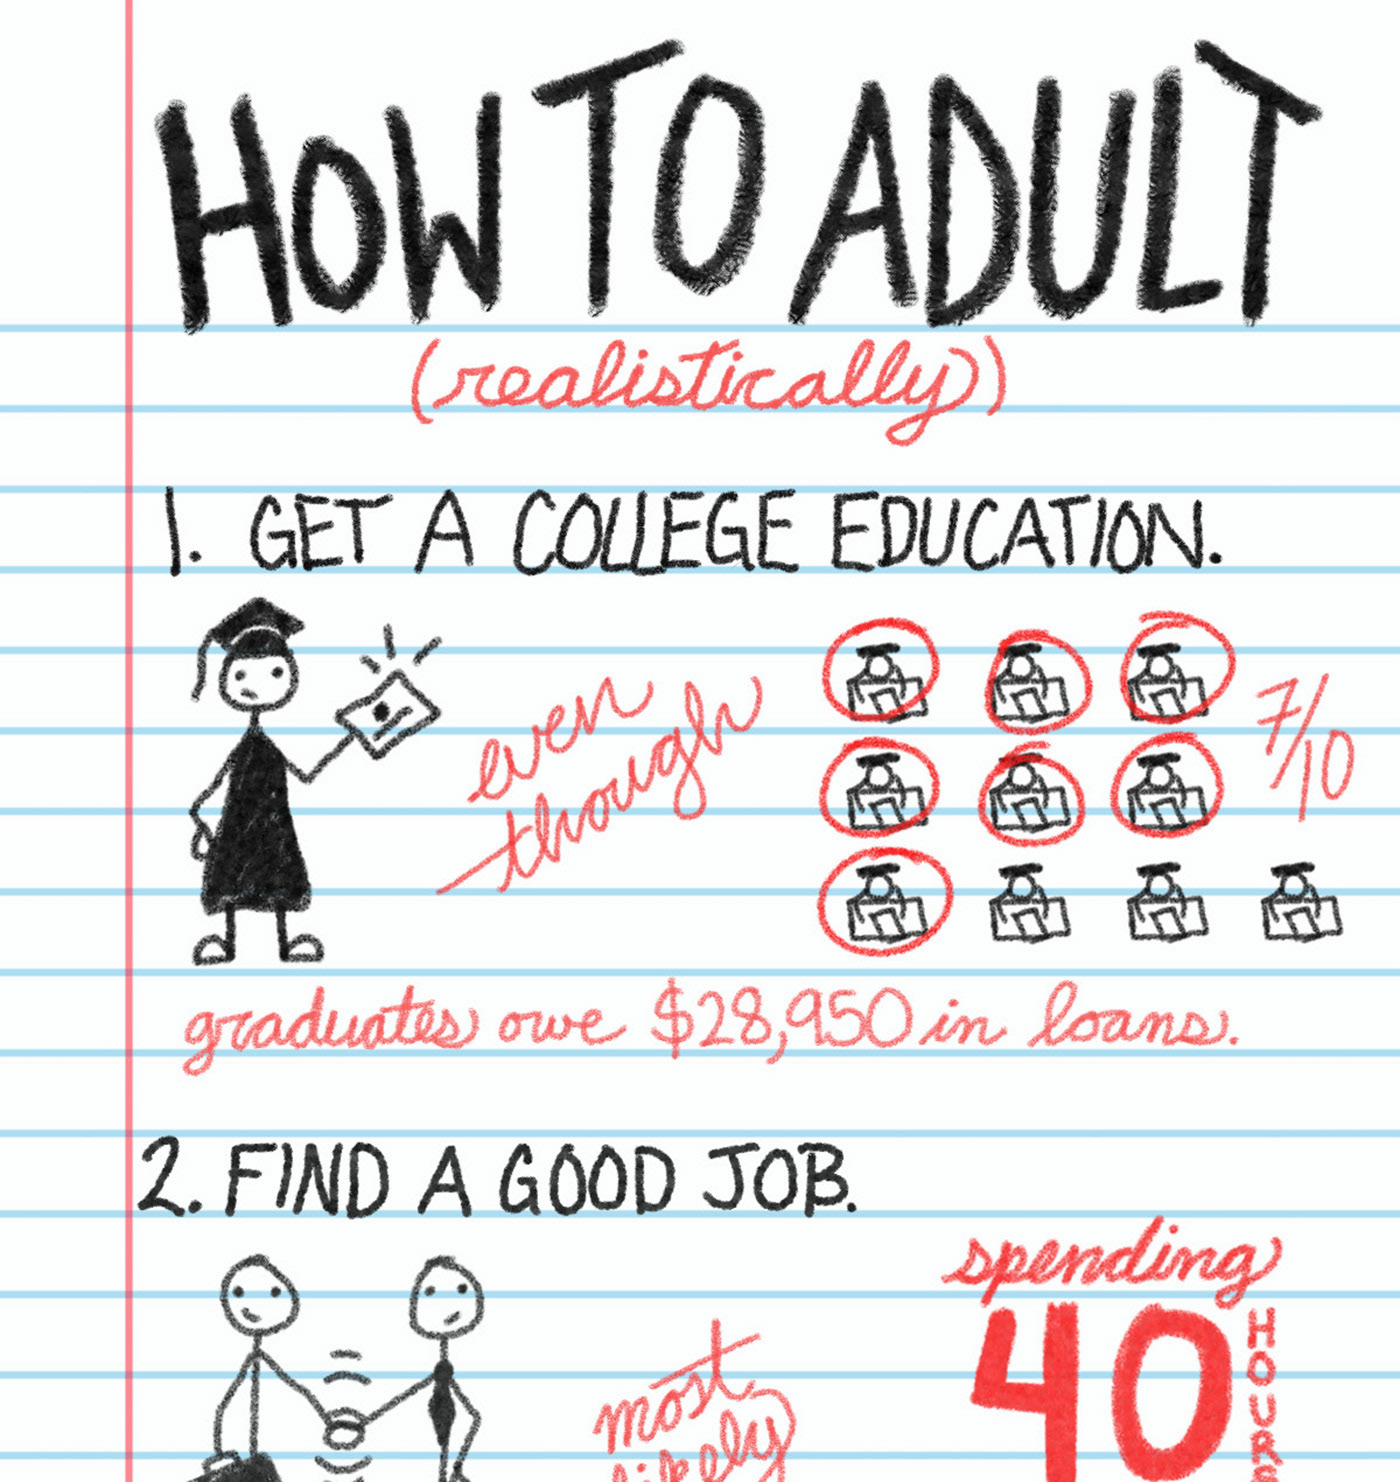 HOW TO ADULT
(realistically)
1. GET A COLLEGE EDUCATION.
even
though
7/10
graduates owe $28,950 in loans.
2. FIND A GOOD JOB.
spending
40
HOURS
most
likely